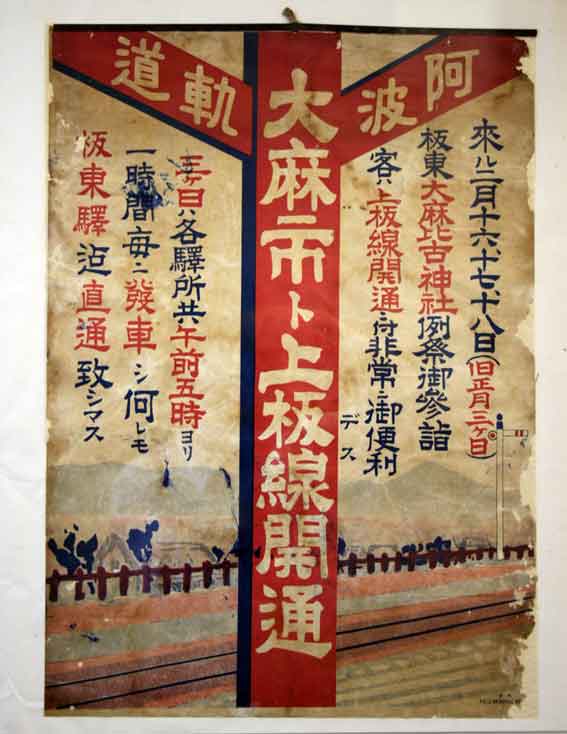 阿波軌道
大麻市ト上板線開通
來ル二月十六、十七、十八日(旧正月三ヶ日)
板東大麻比古神社例祭御參詣
客ハ上板線開通ニ付非常ニ御便利デス
三ヶ日ハ各驛所共午前五時ヨリ
一時間每ニ發車シ何レモ
板東驛迠直通致シマス